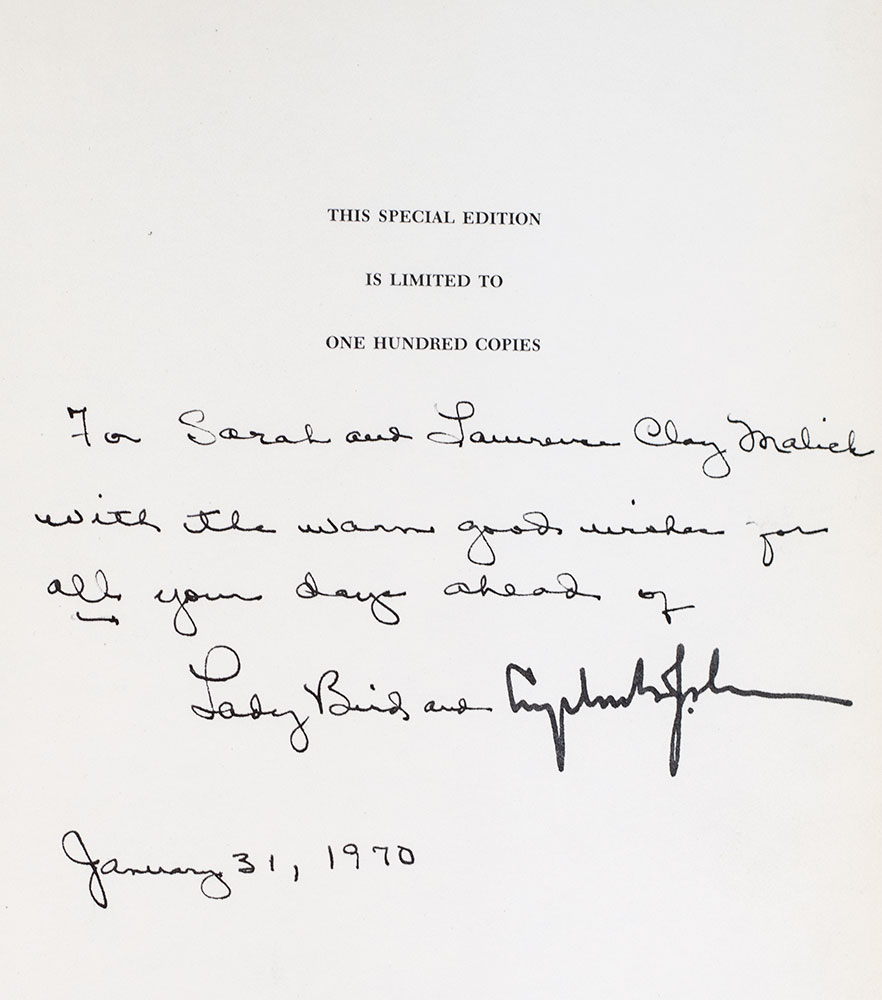 THIS SPECIAL EDITION
IS LIMITED TO
ONE HUNDRED COPIES
For Sarah and Lawrence Clay Malick
with the warm good wishes for
all your days ahead of
Lady Bird and Lyndon B. Johnson
January 31, 1970